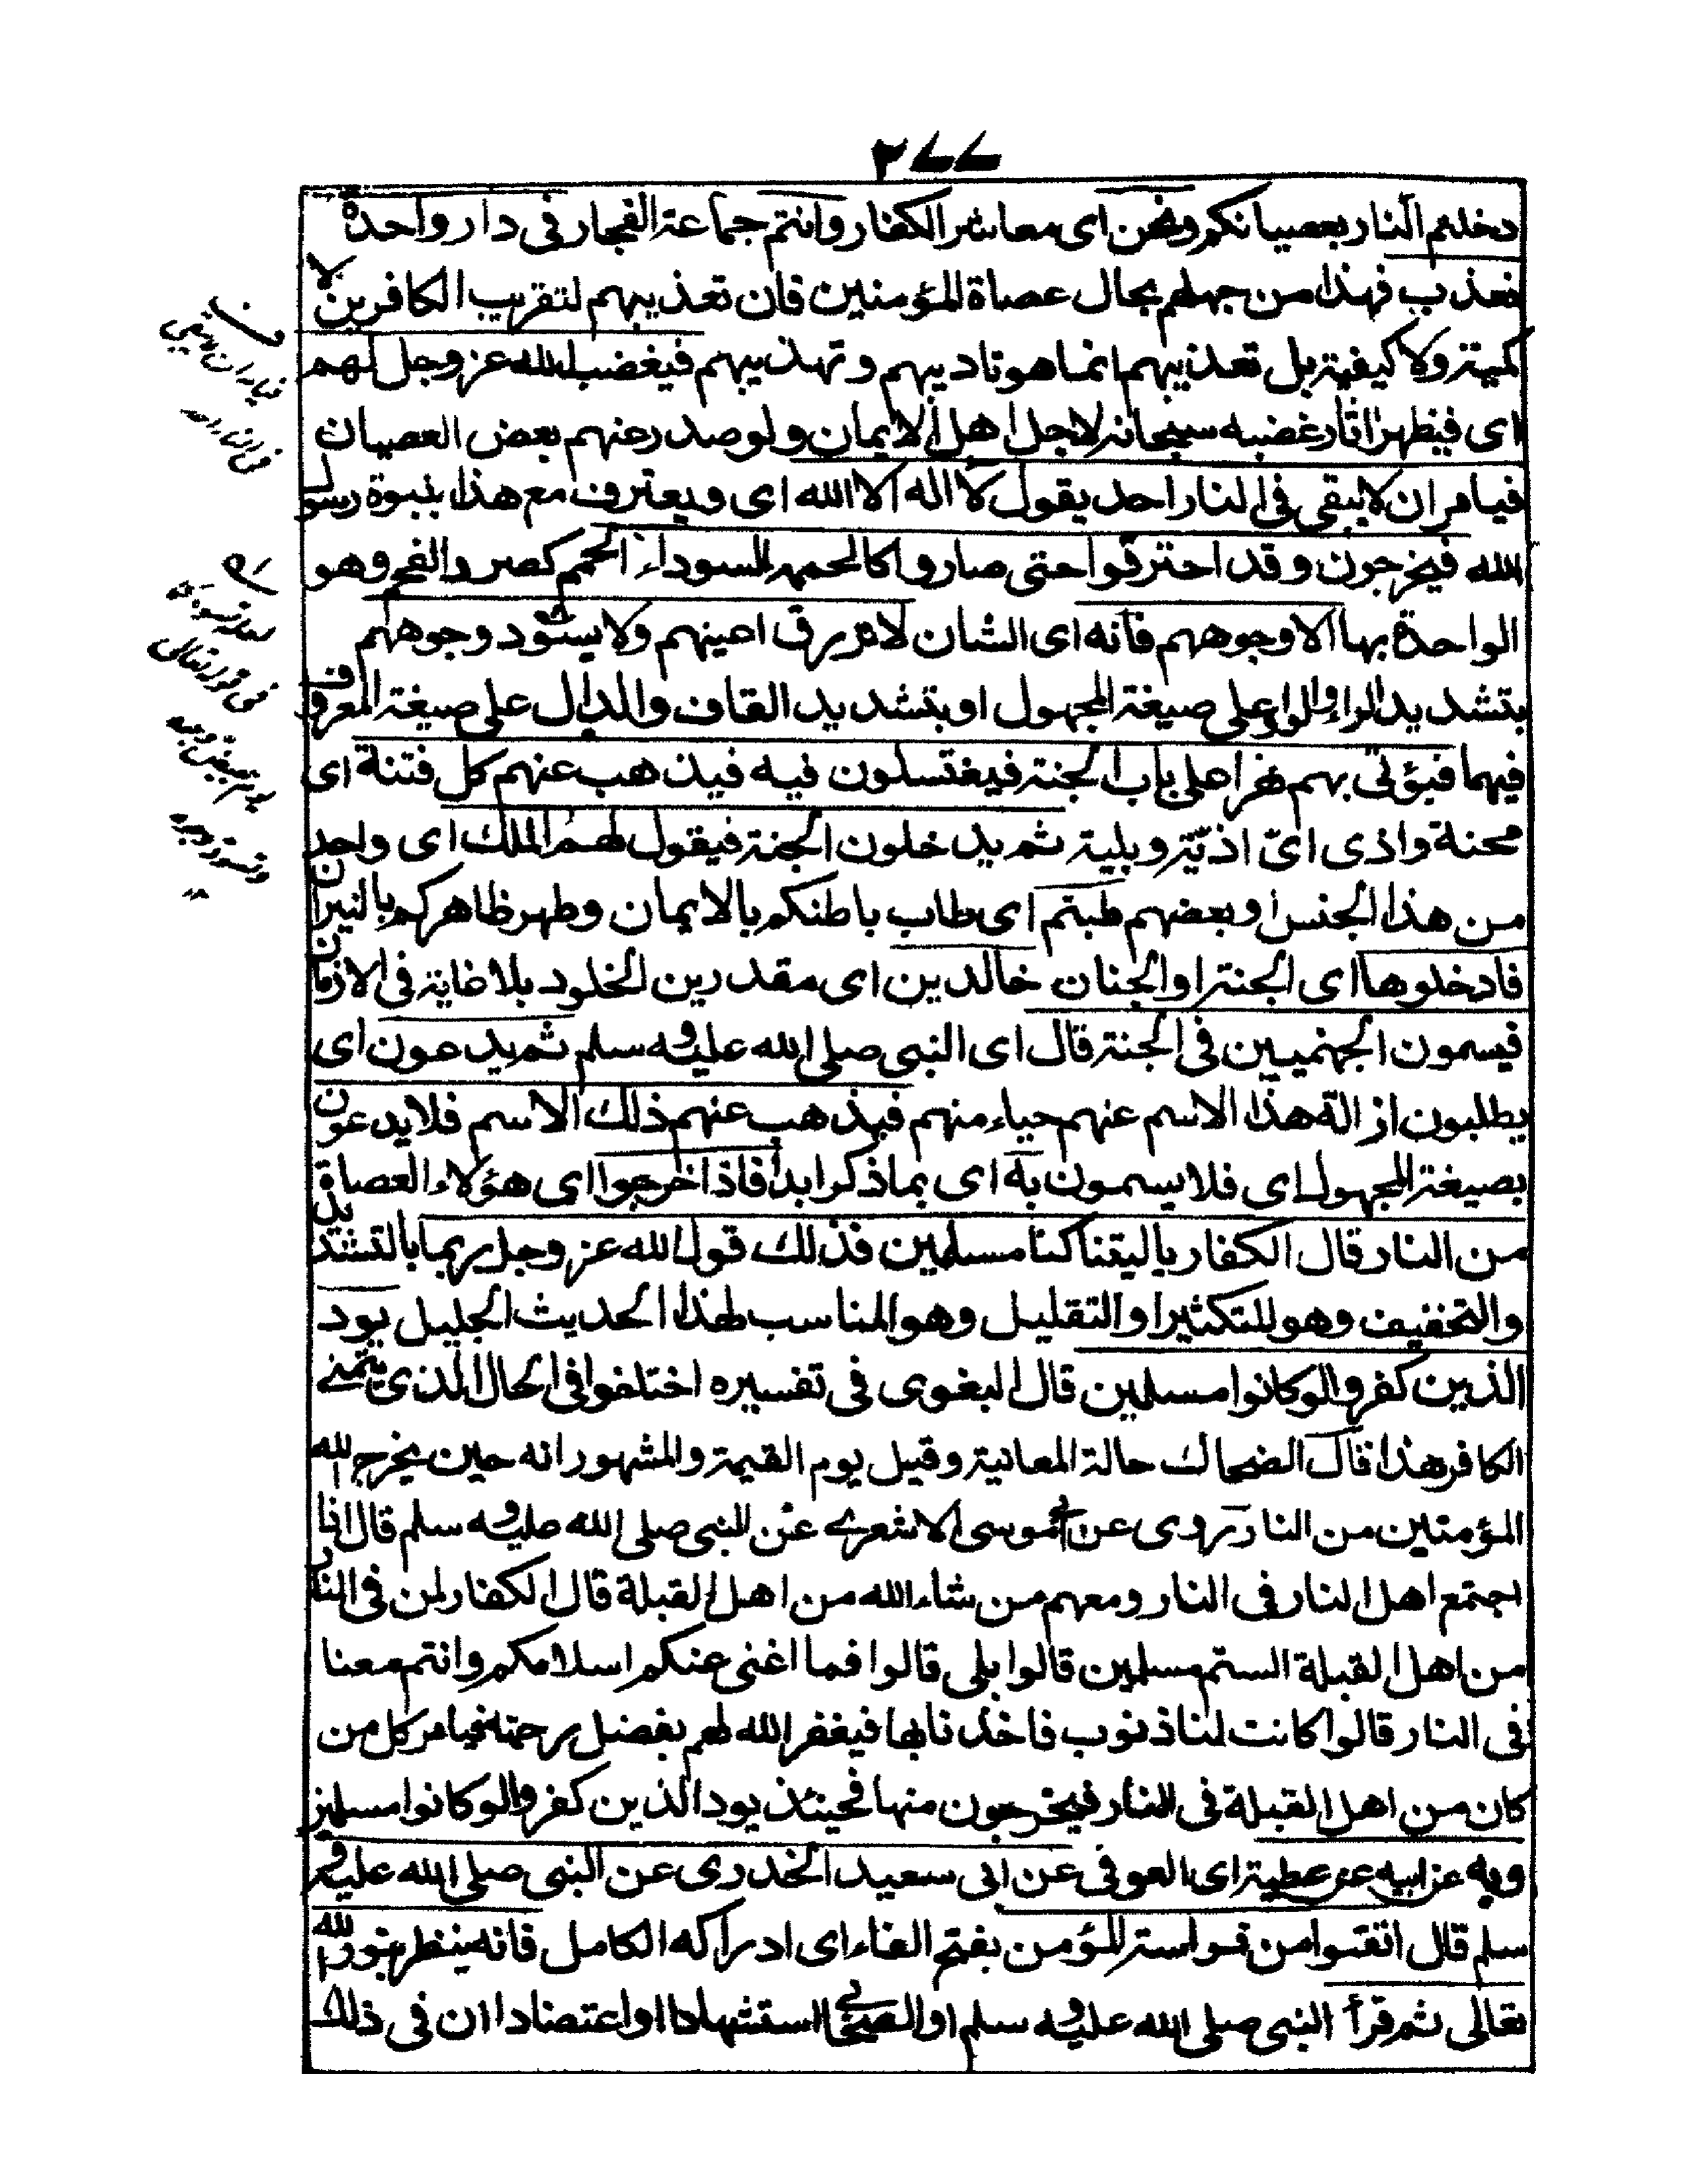 ٢٧٧
دخلتم النار بعصيانكم ونحن اى معاشر الكفار وانتم جماعة الفجار فى دار واحدة
نعذب فهذا من جهلهم بحال عصاة المؤمنين فان تعذيبهم لتقريب الكافرين لا
كمية ولا كيفية بل تعذيبهم انما هو تاديبهم وتهذيبهم فيغضب الله عز وجل لهم
اى فيظهر اثار غضبه سبحانه لاجل اهل الايمان ولو صدر عنهم بعض العصيان
فيامر ان لا يبقى فى النار احد يقول لا اله الا الله اى ويعترف مع هذا بنبوة رسول
الله فيخرجون وقد احترقوا حتى صاروا كالحممة السوداء الحمم كصرد الفحم وهو
الواحدة بها الا وجوههم فانه اى الشان لا يزرق اعينهم ولا يسود وجوههم
بتشديد الراء والواو على صيغة المجهول او بتشديد القاف والدال على صيغة المعروف
فيهما فيؤتى بهم نهرا على باب الجنة فيغتسلون فيه فيذهب عنهم كل فتنة اى
محنة واذى اى اذية وبلية ثم يدخلون الجنة فيقول لهم الملك اى واحد
من هذا الجنس او بعضهم طبتم اى طاب باطنكم بالايمان وطهر ظاهركم بالنيران
فادخلوها اى الجنة او الجنان خالدين اى مقدرين الخلود بلا غاية فى الازمان
فيسمون الجهنميين فى الجنة قال اى النبى صلى الله عليه وسلم ثم يدعون اى
يطلبون ازالة هذا الاسم عنهم حياء منهم فيذهب عنهم ذلك الاسم فلا يدعون
بصيغة المجهول اى فلا يسمون به اى بما ذكر ابدا فاذا اخرجوا اى هؤلاء العصاة
من النار قال الكفار ياليتنا كنا مسلمين فذلك قول الله عز وجل ربما بالتشديد
والتخفيف وهو للتكثير او التقليل وهو المناسب لهذا الحديث الجليل يود
الذين كفروا لو كانوا مسلمين قال البغوى فى تفسيره اختلفوا فى الحال الذى يتمنى
الكافر هذا قال الضحاك حالة المعاينة وقيل يوم القيمة والمشهور انه حين يخرج الله
المؤمنين من النار روى عن ابى موسى الاشعرى عن النبى صلى الله عليه وسلم قال اذا
اجتمع اهل النار فى النار ومعهم من شاء الله من اهل القبلة قال الكفار لمن فى النار
من اهل القبلة الستم مسلمين قالوا بلى قالوا فما اغنى عنكم اسلامكم وانتم معنا
فى النار قالوا كانت لنا ذنوب فاخذنا بها فيغفر الله لهم بفضل رحمته فيامر كل من
كان من اهل القبلة فى النار فيخرجون منها فحينئذ يود الذين كفروا لو كانوا مسلمين
وبه عن ابيه عن عطية اى العوفى عن ابى سعيد الخدرى عن النبى صلى الله عليه و
سلم قال اتقوا من فراسة المؤمن بفتح الفاء اى ادراكه الكامل فانه ينظر بنور الله
تعالى ثم قرأ النبى صلى الله عليه وسلم او الصحابى استشهادا او اعتضادا ان فى ذلك